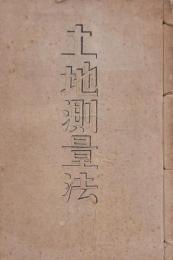 土地測量法